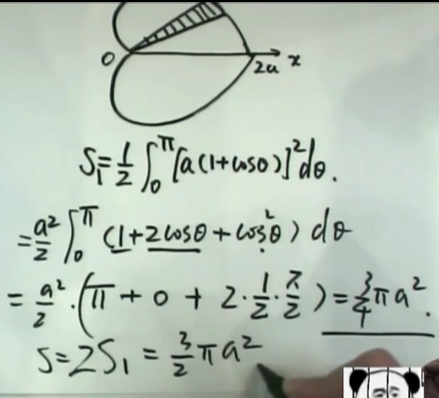 0 2a x
S₁=½∫₀^π[a(1+cosθ)]²dθ.
=a²/2 ∫₀^π (1+2cosθ+cos²θ) dθ
= a²/2 ·(π + 0 + 2·½·π/2 )=¾πa².
S=2S₁ = 3/2 πa²